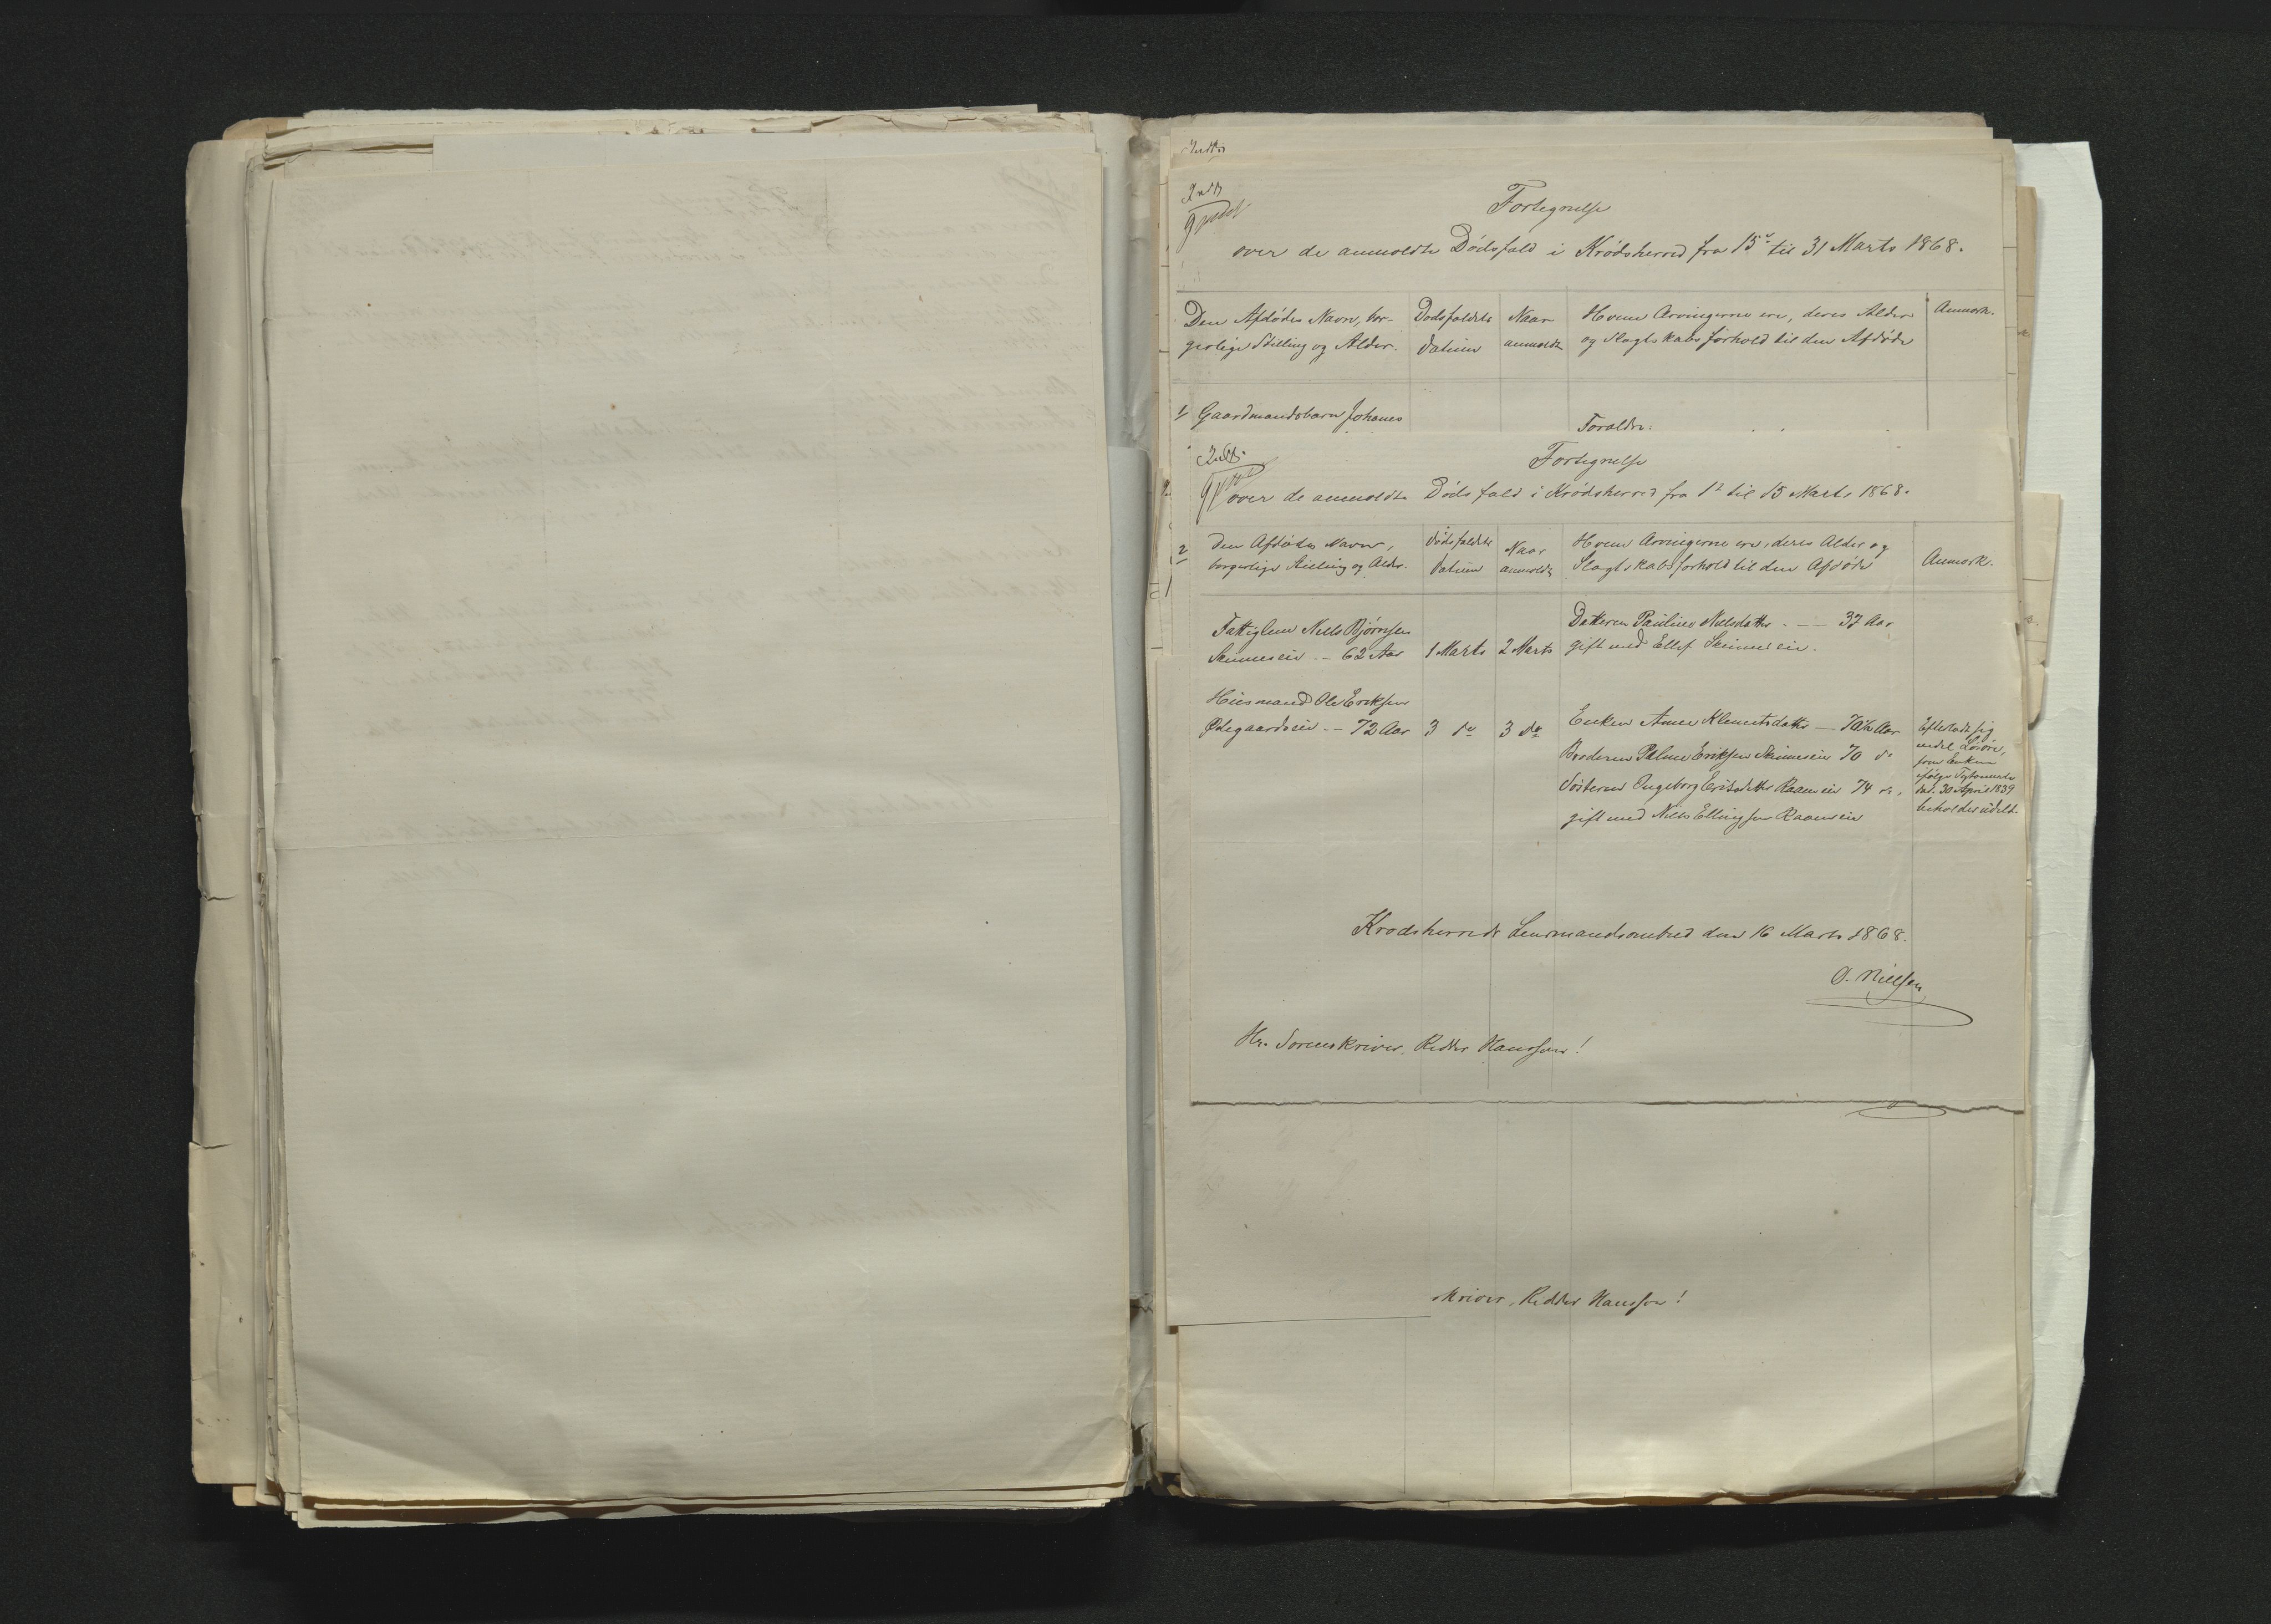 Fortegnelse
over de anmeldte Dødsfald i Krødsherred fra 15de til 31 Marts 1868.
Den Afdødes Navn, bor-
gerlige Stilling og Alder.
Dødsfaldets
Datum
Naar
anmeldt
Hvem Arvingerne ere, deres Alder
og Slægtskabsforhold til den Afdøde
Anmærk.
1/ Gaardmandsbarn Johanes
Forældre:
Fortegnelse
over de anmeldte Dødsfald i Krødsherred fra 1ste til 15 Marts 1868.
2
Den Afdødes Navn,
borgerlige Stilling og Alder.
Dødsfaldets
Datum
Naar
anmeldt
Hvem Arvingerne ere, deres Alder og
Slægtskabsforhold til den Afdøde
Anmærk.
Fattiglem Nils Bjørnsen
Skinneseie -- 62 Aar
1 Marts
2 Marts
Datteren Pauline Nilsdatter - -- 37 Aar
gift med Ellef Skinneseie.
Huusmand Ole Eriksen
Ødegaardseie -- 72 Aar
3 do
3 do
Enken Anne Klemetsdatter — 70½ Aar
Broderen Palme Eriksen Skinneseie 70 do
Søsteren Ingeborg Eriksdatter Raaeneie 74 do,
gift med Nils Ellingsen Raaeneie
Efterlod sig
endel Løsøre,
som Enken
ifølge Testamente
dat. 30 April 1839
beholder udelt.
Krødsherreds Lensmandsombud den 16 Marts 1868.
O. Nielsen
Hr. Sorenskriver, Ridder Hansson!
skriver, Ridder Hansson!